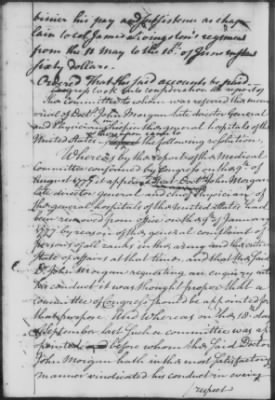 binier his pay and subsistence as chap
lain to Col. James Livingston's regiment
from the 12 May to the 16th of June ex
sixty dollars.
Ordered That the said accounts be paid
Congress took into consideration the report of
the committee to whom was referred the memo
rial of Doctr. John Morgan late director General
and physician in chief in the general hospitals of the
United States: the following resolution,
Whereas by the report of the Medical
Committee confirmed by Congress on the 9th of
August 1777 it appears that Doctr. John Morgan
late director general and physician in chief of
the general hospitals of the United States had
been removed from office on the 9th of January
1777 by reason of the general complaint of
persons of all ranks in the army and the critical
State of affairs at that time: and that the said
Dr. John Morgan requesting an enquiry into
his conduct it was thought proper that a
committee of Congress should be appointed for
that purpose And Whereas on the 18th day
of September last such a committee was ap
pointed and before whom the said Doctor
John Morgan hath in the most satisfactory
manner vindicated his conduct in every
respect